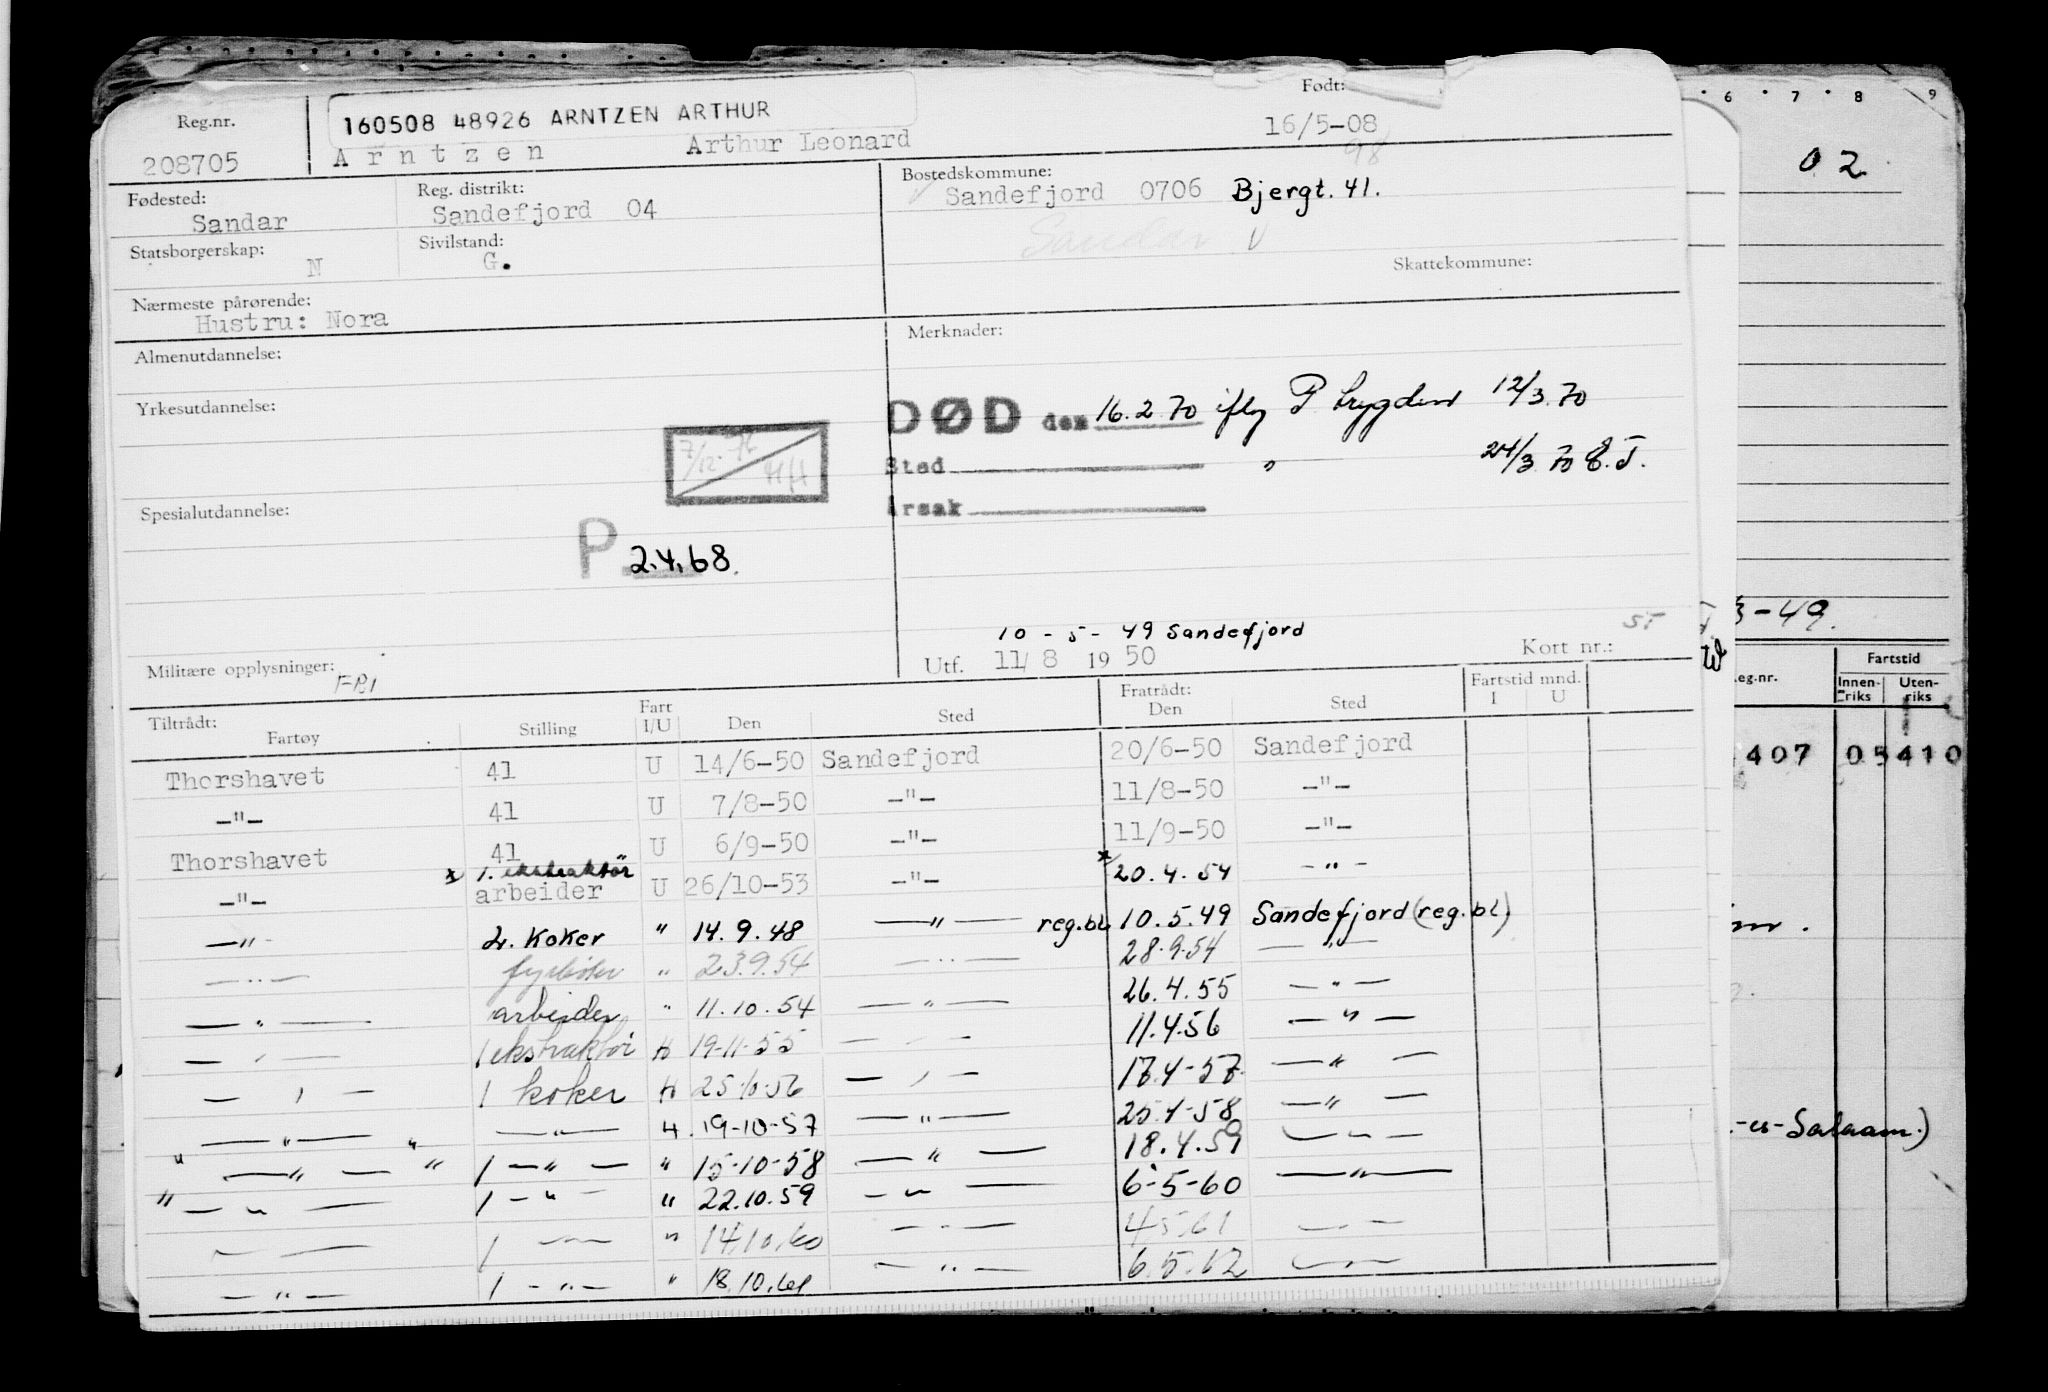 Reg.nr.
208705
160508 48926 ARNTZEN ARTHUR
Arntzen Arthur Leonard
Født:
16/5-08
98
Fødested:
Sandar
Reg. distrikt:
Sandefjord 04
Bostedskommune:
Sandefjord 0706 Bjergt. 41.
Sandar
Statsborgerskap:
N
Sivilstand:
G.
Skattekommune:
Nærmeste pårørende:
Hustru: Nora
Almenutdannelse:
Merknader:
Yrkesutdannelse:
DØD den 16.2.70 iflg P. trygden 12/3.70
Sted " 24/3.70 E.T.
Årsak
7/12
HH
Spesialutdannelse:
P 2.4.68.
Militære opplysninger:
FRI
10-5-49 Sandefjord
Utf. 11/8 1950
Kort nr.:
ST
Tiltrådt:
Fartøy Stilling Fart I/U Den Sted Fratrådt: Den Sted Fartstid mnd. I U
Thorshavet 41 U 14/6-50 Sandefjord 20/6-50 Sandefjord
-"- 41 U 7/8-50 -"- 11/8-50 -"-
Thorshavet 41 U 6/9-50 -"- 11/9-50 -"-
-"- x 1. ekstraktör arbeider U 26/10-53 -"- x 20.4.54 -"-
-"- 2. Koker " 14.9.48 -"- reg.bl. 10.5.49 Sandefjord (reg.bl)
-"- fyrbøter " 23.9.54 -"- 28.9.54 -"-
-"- arbeider " 11.10.54 -"- 26.4.55 -"-
-"- 1 ekstraktör H 19-11-55 -"- 11.4.56 -"-
-"- 1 koker H 25-10-56 -"- 17.4-57 -"-
-"- " -"- H. 19-10-57 -"- 25.4-58 -"-
" -"- " 1 -"- " 15-10-58 -"- 18.4.59 -"-
" -"- 1 -"- " 22.10.59 -"- 6-5-60 -"-
-"- 1 -"- " 14.10.60 -"- 4.5.61 -"-
-"- 1 -"- " 18.10.61 -"- 6.5.62 -"-
6 7 8 9
02
3-49.
eg.nr.
Fartstid
Innen-riks
Uten-riks
407 05410
-es-Salaam.)